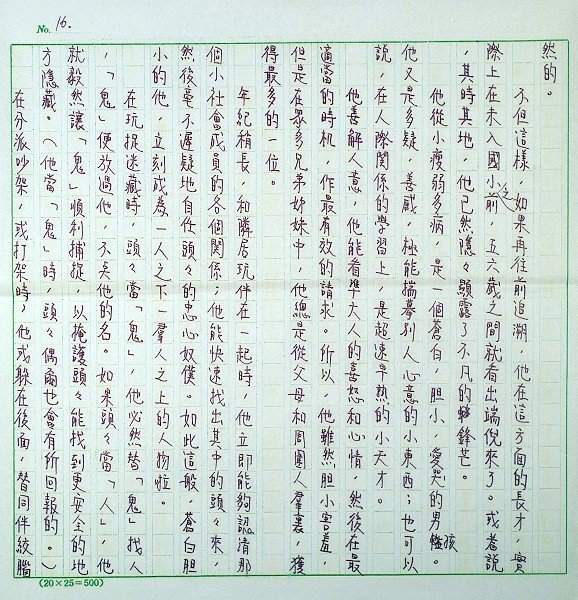 No. 16.
然的。
不但這樣，如果再往前追溯，他在這方面的長才，實
際上在未入國小之前，五六歲之間就看出端倪來了。或者說
，其時其地，他已然隱々顯露了不凡的鋒芒。
他從小瘦弱多病，是一個蒼白，胆小，愛哭的男孩。
他又是多疑，善感，極能揣摹別人心意的小東西；也可以
說，在人際關係的學習上，是超速早熟的小天才。
他善解人意，他能看準大人的喜怒和心情，然後在最
適當的時机，作最有效的請求。所以，他雖然胆小害羞，
但是在眾多兄弟姊妹中，他總是從父母和周圍人羣裏，獲
得最多的一位。
年紀稍長，和隣居玩伴在一起時，他立即能夠認清那
個小社會成員的各個關係；他能快速找出其中的頭々來，
然後毫不遲疑地自任頭々的忠心奴僕。如此這般，蒼白胆
小的他，立刻成為一人之下一羣人之上的人物啦。
在玩捉迷藏時，頭々當「鬼」，他必然替「鬼」找人
，「鬼」便放過他，不喊他的名。如果頭々當「人」，他
就毅然讓「鬼」順利捕捉，以掩護頭々能找到更安全的地
方隱藏。（他當「鬼」時，頭々偶爾也會有所回報的。）
在分派吵架，或打架時，他或躲在後面，替同伴絞腦
(20×25=500)